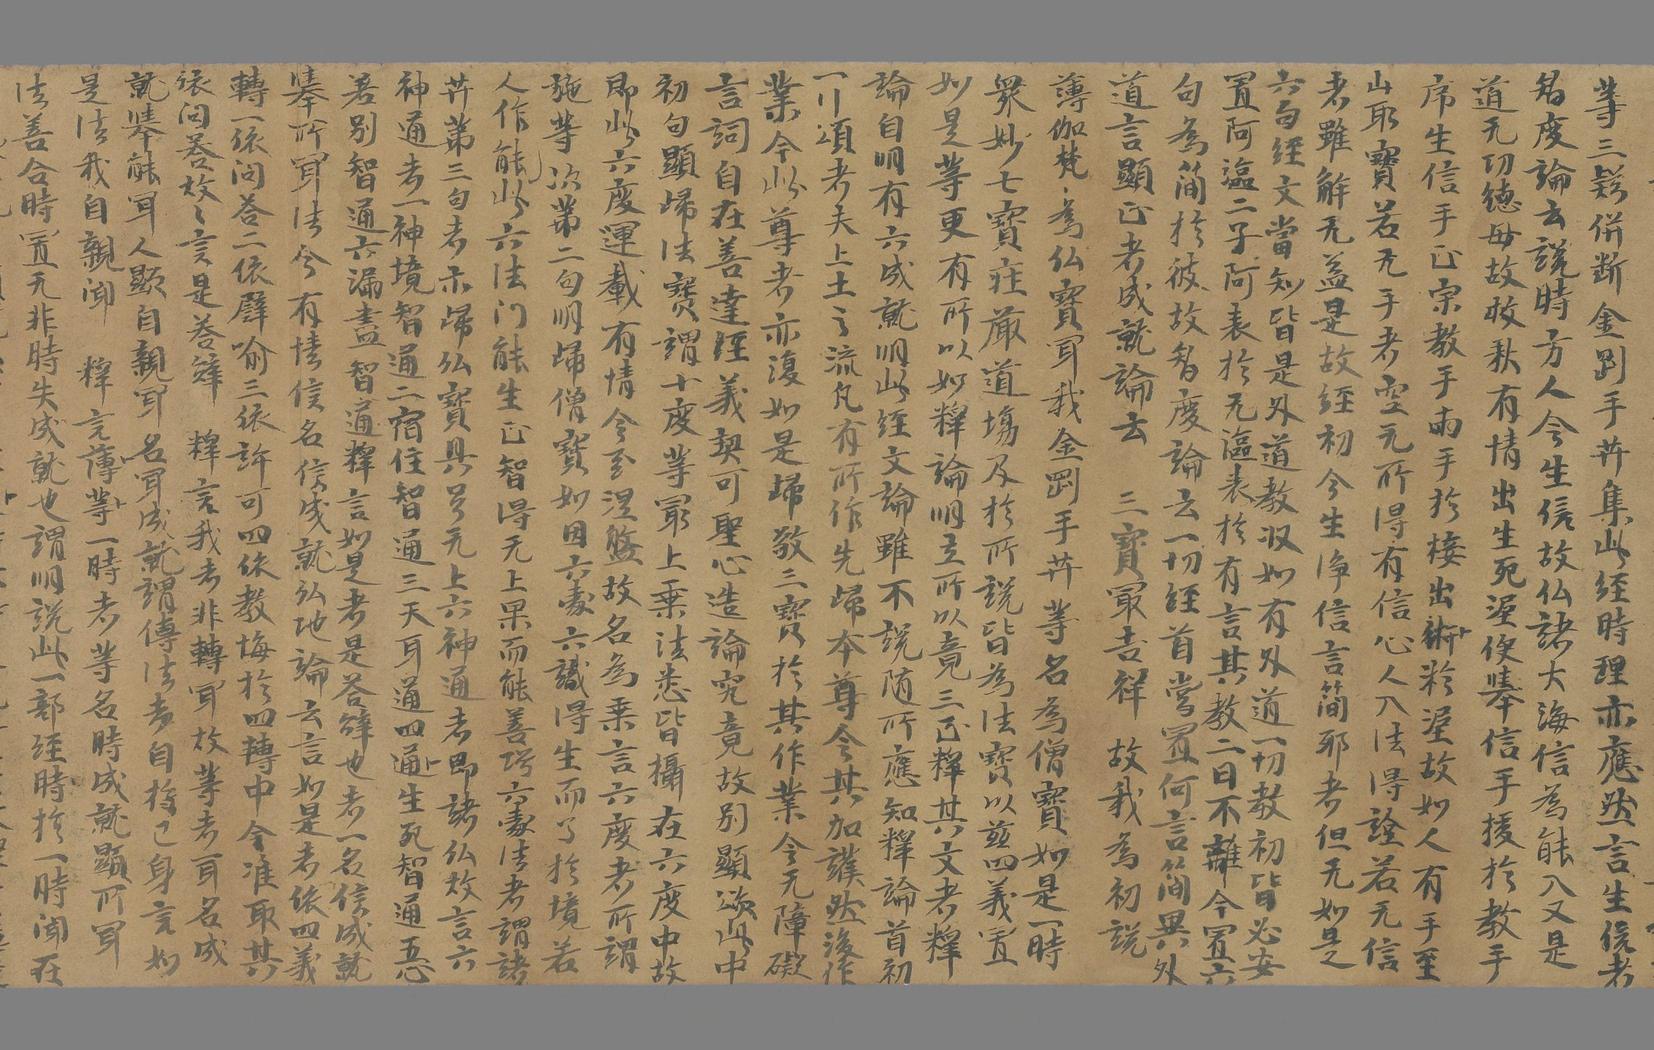 等三疑併断金剛手卉集此经時理亦應然言生信者
智度論云說時方人令生信故仏諸大海信為能入又是
道无功德母故收秋有情出生死渥使舉信手援於教手
序生信手正宗教手兩手於接出術於渥故如人有手至
山取寶若无手者空无所得有信心人入法得詮若无信
者雖解无益是故经初令生淨信言簡邪者但无如是
六句经文當知皆是外道教収如有外道一切教初皆必安
置阿漚二子阿表於无漚表於有言其教二日不離今置六
句為簡於彼故智度論云一切经首當置何言簡異外
道言顯正者成就論云 三寶最吉祥 故我為初說
薄伽梵為仏寶耳我金剛手卉等名為僧寶如是一時
眾妙七寶莊嚴道塲及於所說皆為法寶以玆四義置
如是等更有所以如釋論明立所以竟三正釋其文者釋
論自明有六成就明此经文論雖不說随所應知釋論首初
一行頌者夫上士之流凡有所作先歸本尊令其加護然後作
業今此尊者亦復如是歸敬三寶於其作業令无障礙
言詞自在善達经義契可聖心造論究竟故別顯頌此中
初句顯歸法寶謂十度等最上乘法悉皆攝在六度中故
即此六度運載有情令至涅盤故名為乘言六度者所謂
施等次第二句明歸僧寶如因六處六識得生而了於境若
人作能此六法门能生正智得无上果而能善巧六處法者謂諸
卉第三句者示歸仏寶具足无上六神通者即諸仏故言六
神通者一神境智通二宿住智通三天耳通四通生死智通五心
差別智通六漏盡智通釋言如是者是答辞也者一名信成就
舉所聞法令有情信名信成就仏地論云言如是者依四義
轉一依問答二依譬喻三依許可四依教悔於四轉中今准取其
依问答故言是答辞 釋言我者非轉聞故等者耳名成
就舉能聞人顯自親聞名聞成就謂傳法者自持己身言如
是法我自親聞 釋言薄等一時者等名時成就顯所聞
法善合時宜无非時失成就也謂明說此一部经時於一時聞在